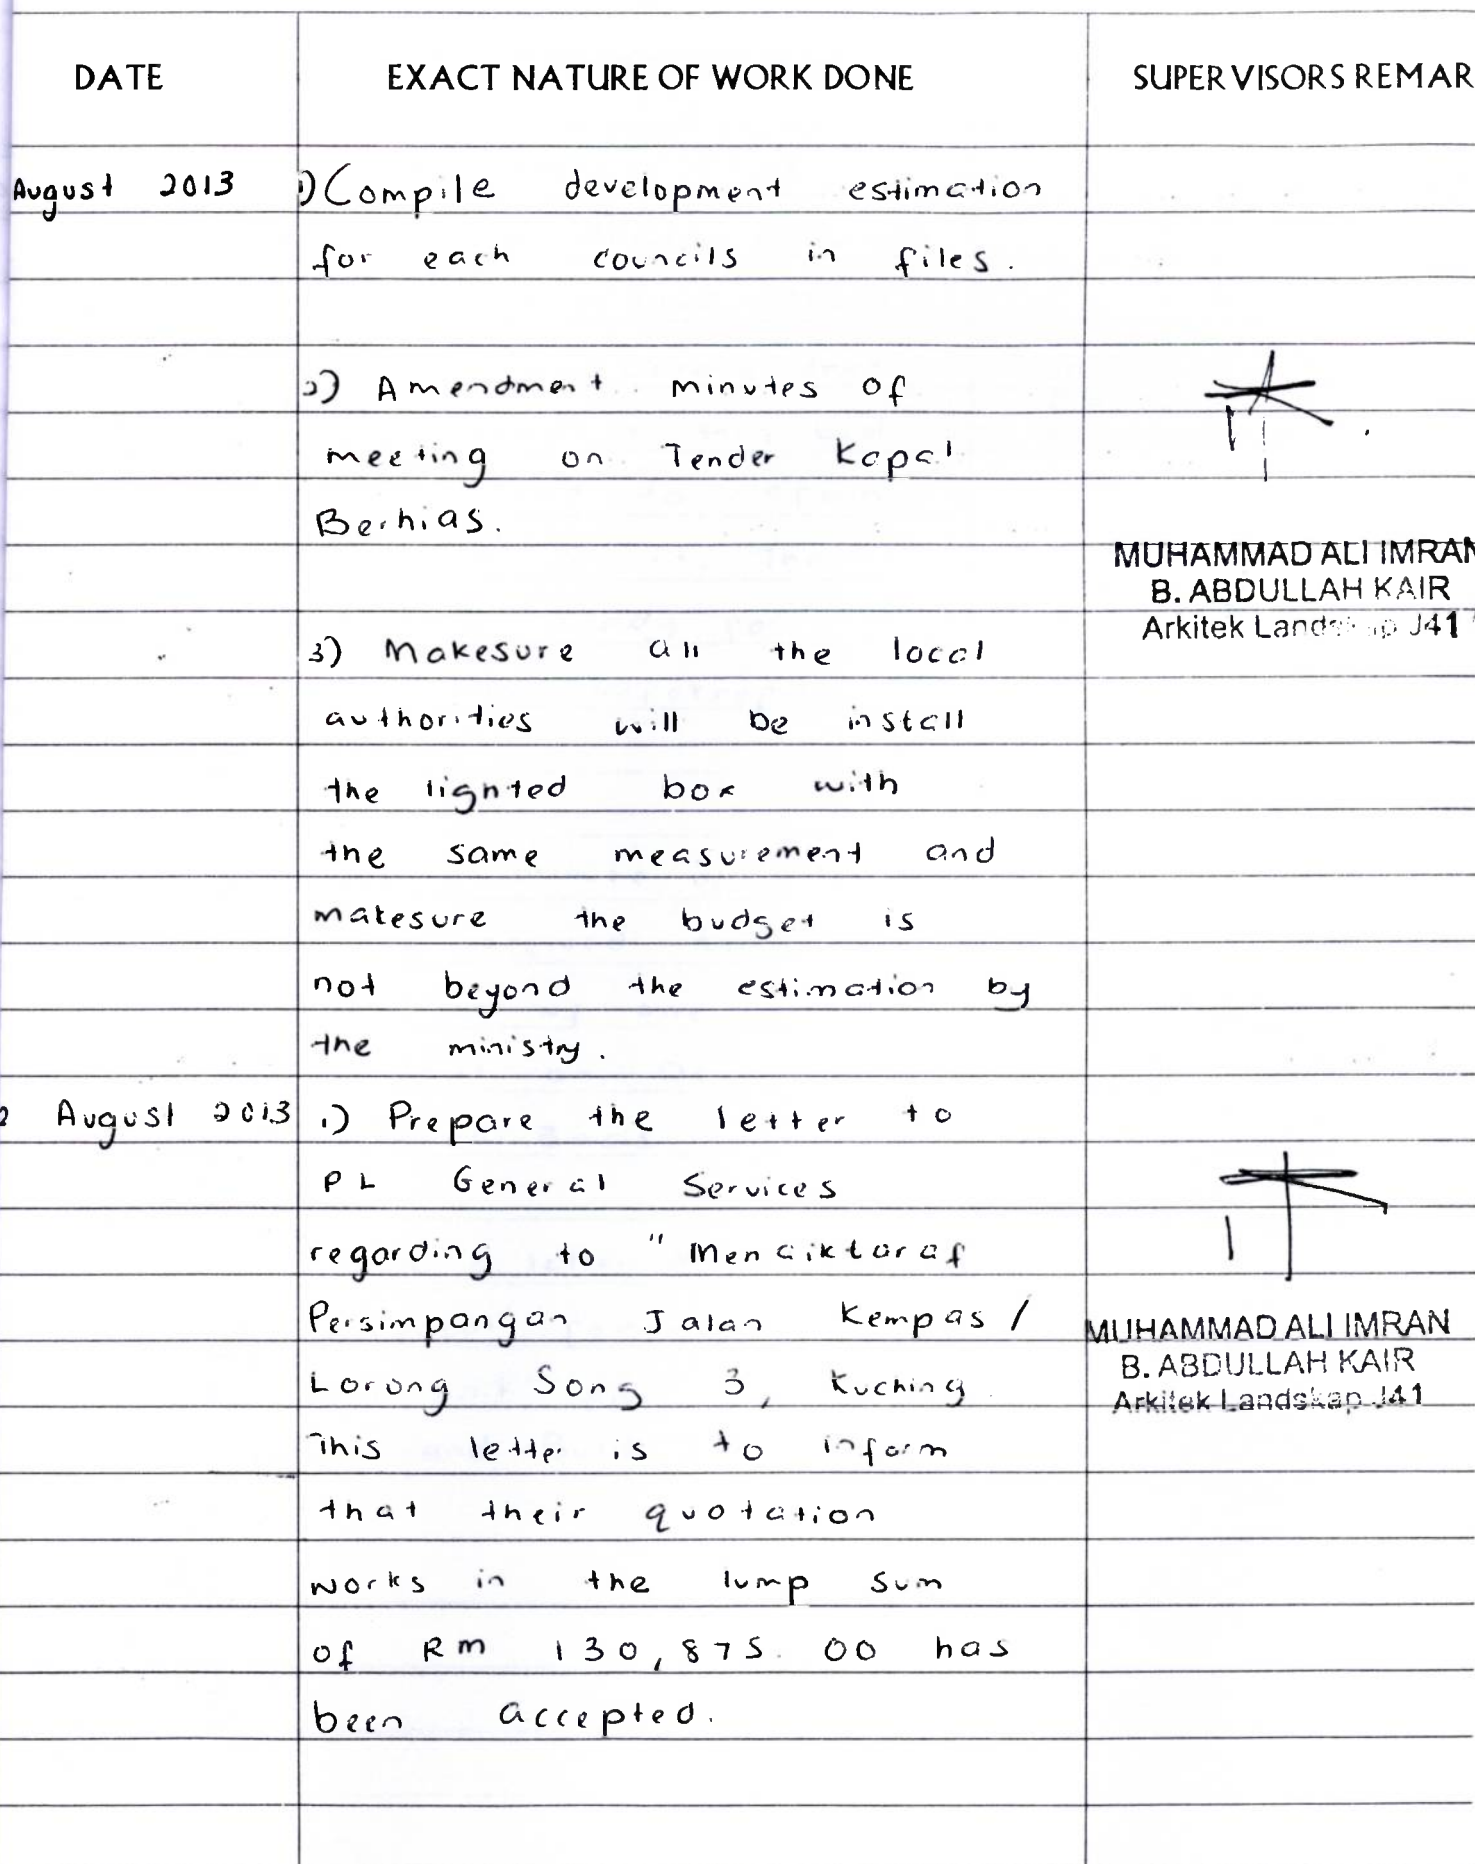 DATE EXACT NATURE OF WORK DONE SUPERVISORS REMAR
August 2013 1) Compile development estimation
for each councils in files.
2) Amendment minutes of
meeting on Tender Kapal
Berhias.
MUHAMMAD ALI IMRAN
B. ABDULLAH KAIR
Arkitek Landskap J41
3) Makesure all the local
authorities will be install
the lighted box with
the same measurement and
makesure the budget is
not beyond the estimation by
the ministry.
2 August 2013 1) Prepare the letter to
PL General Services
regarding to "Menaiktaraf
Persimpangan Jalan Kempas /
Lorong Song 3, Kuching
This letter is to inform
that their quotation
works in the lump sum
of RM 130,875.00 has
been accepted.
MUHAMMAD ALI IMRAN
B. ABDULLAH KAIR
Arkitek Landskap J41